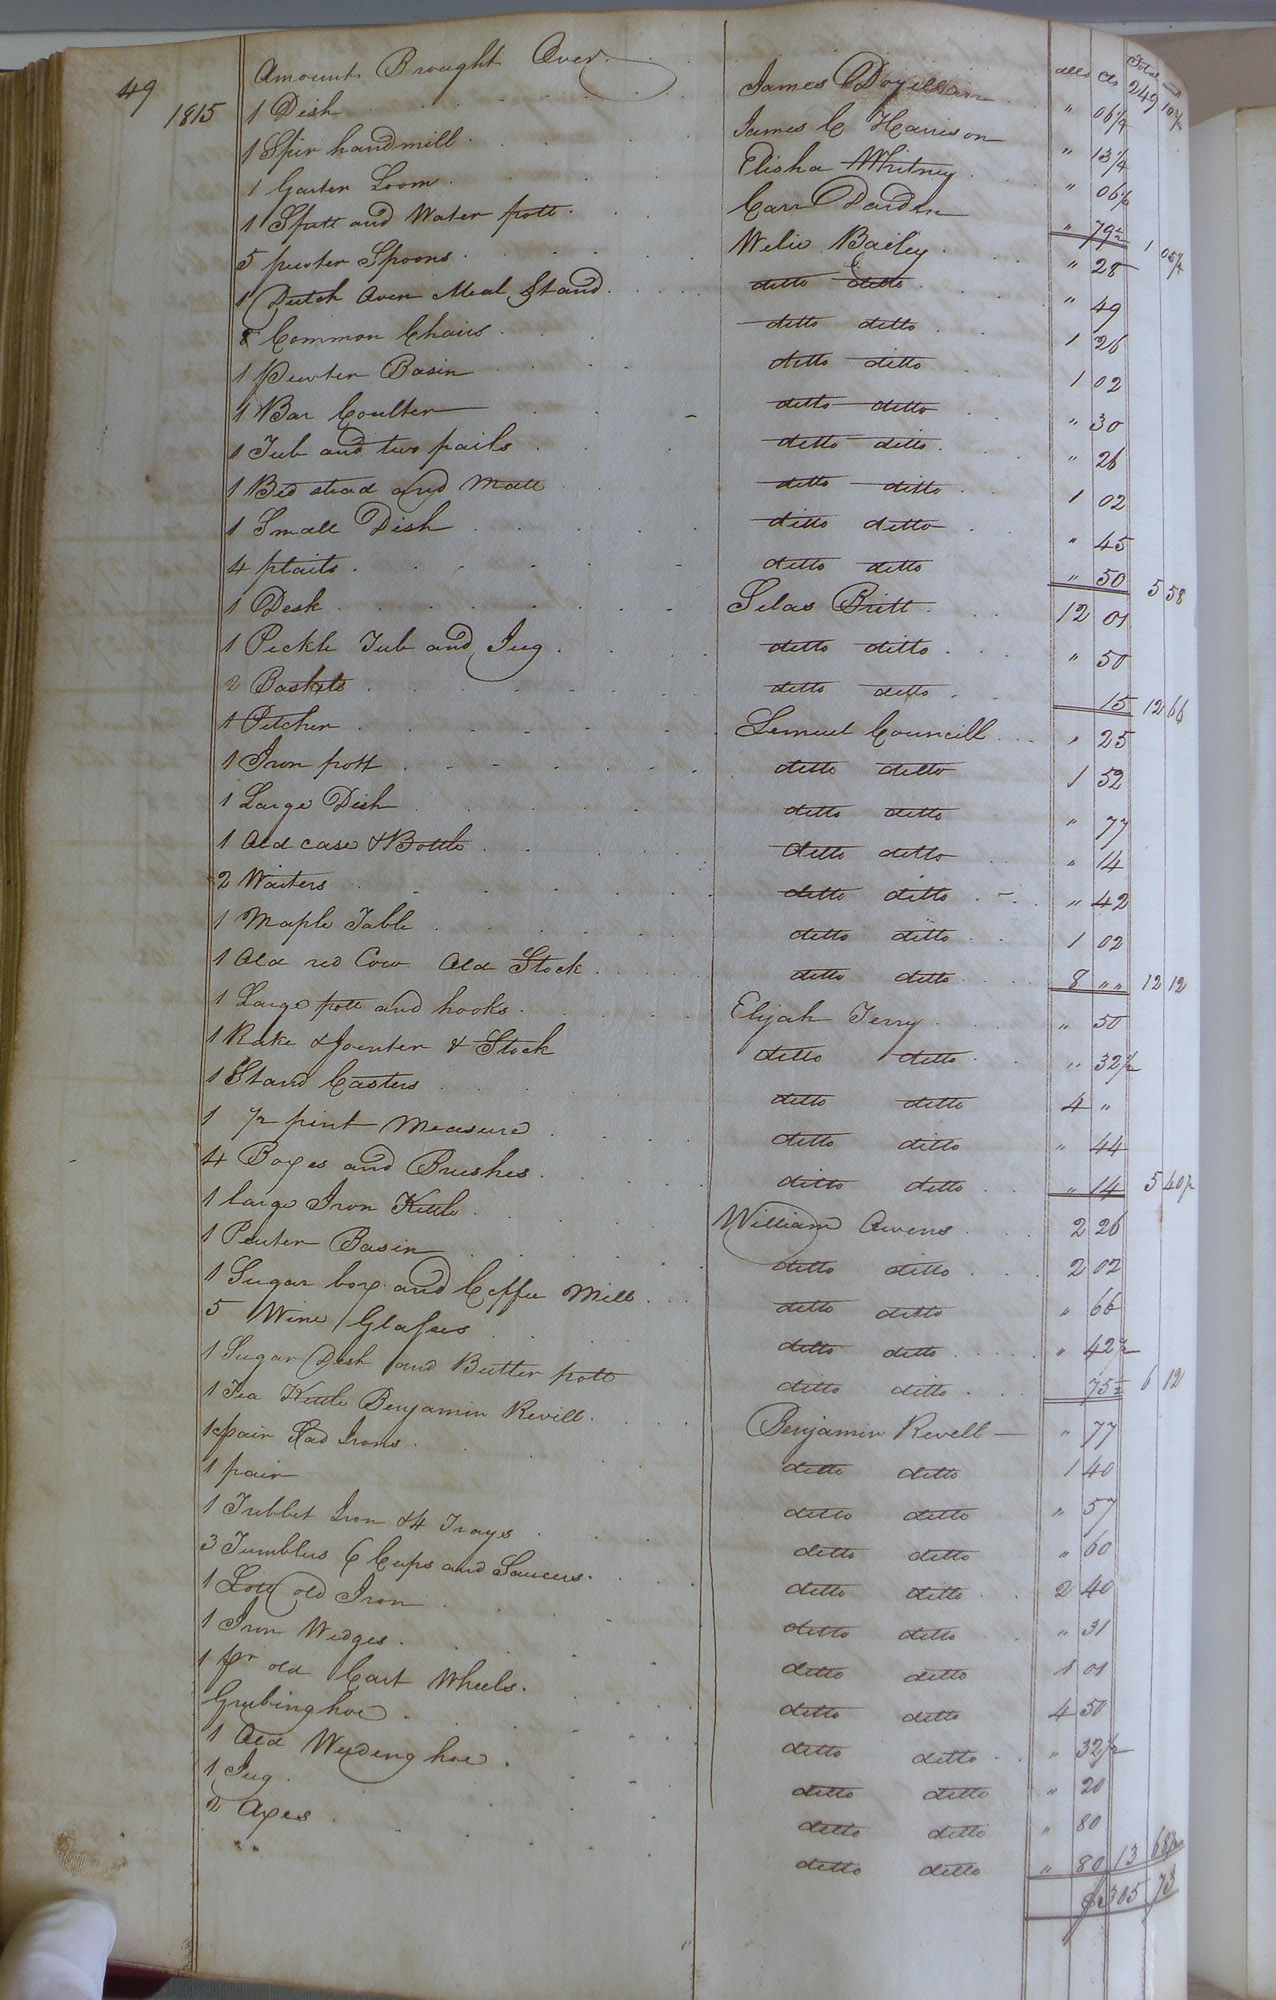 Amount Brought Over dlls cts Total amt
49 249 10 3/4
1815 1 Dish James C Harrison " 06 1/4
1 Spir handmill Elisha Whitney " 13 1/4
1 Garter Loom Carr Darden " 06 1/2
1 Spitt and Water pott Welie Bailey " 79 1/2 1 05 1/4
5 pewter Spoons ditto ditto " 28
1 Dutch Oven Meal Stand ditto ditto " 49
8 Common Chairs ditto ditto 1 26
1 Pewter Basin ditto ditto 1 02
1 Bar Coulter ditto ditto " 30
1 Tub and two pails ditto ditto " 26
1 Bed stead and Matt ditto ditto 1 02
1 Small Dish ditto ditto " 45
4 plaits ditto ditto " 50 5 58
1 Desk Silas Britt 12 01
1 Pickle Tub and Jug ditto ditto " 50
2 Baskets ditto ditto 15 12 66
1 Pitcher Lemuel Councill " 25
1 Iron pott ditto ditto 1 52
1 Large Dish ditto ditto " 77
1 Old case & Bottle ditto ditto " 14
2 Waiters ditto ditto " 42
1 Maple Table ditto ditto 1 02
1 Old red Cow Old Stock ditto ditto 8 " " 12 12
1 Large pott and hooks Elijah Terry " 50
1 Rake & Jointer & Stock ditto ditto " 32 1/2
1 Stand Casters ditto ditto 4 "
1 1/2 pint Measure ditto ditto " 44
4 Boxes and Brushes ditto ditto " 14 5 40 1/2
1 large Iron Kettle William Owens 2 26
1 Peuter Basin ditto ditto 2 02
1 Sugar box and Coffee Mill ditto ditto " 66
5 Wine Glasses ditto ditto " 42 1/2
1 Sugar Dish and Butter pott ditto ditto 75 1/2 6 12
1 Tea Kettle Benjamin Revill Benjamin Revell " 77
1 pair Sad Irons ditto ditto 1 40
1 pair ditto ditto " 57
1 Tribbet Iron & 4 Trays ditto ditto " 60
3 Tumblers 6 Cups and Saucers ditto ditto 2 40
1 Lott old Iron ditto ditto " 31
1 Iron Wedges ditto ditto 1 01
1 pr old Cart Wheels ditto ditto 4 50
Grubing hoe ditto ditto " 32 1/2
1 Old Weeding hoe ditto ditto " 20
1 Jug ditto ditto " 80
2 Axes ditto ditto " 80 13 68 1/2
$ 305 73